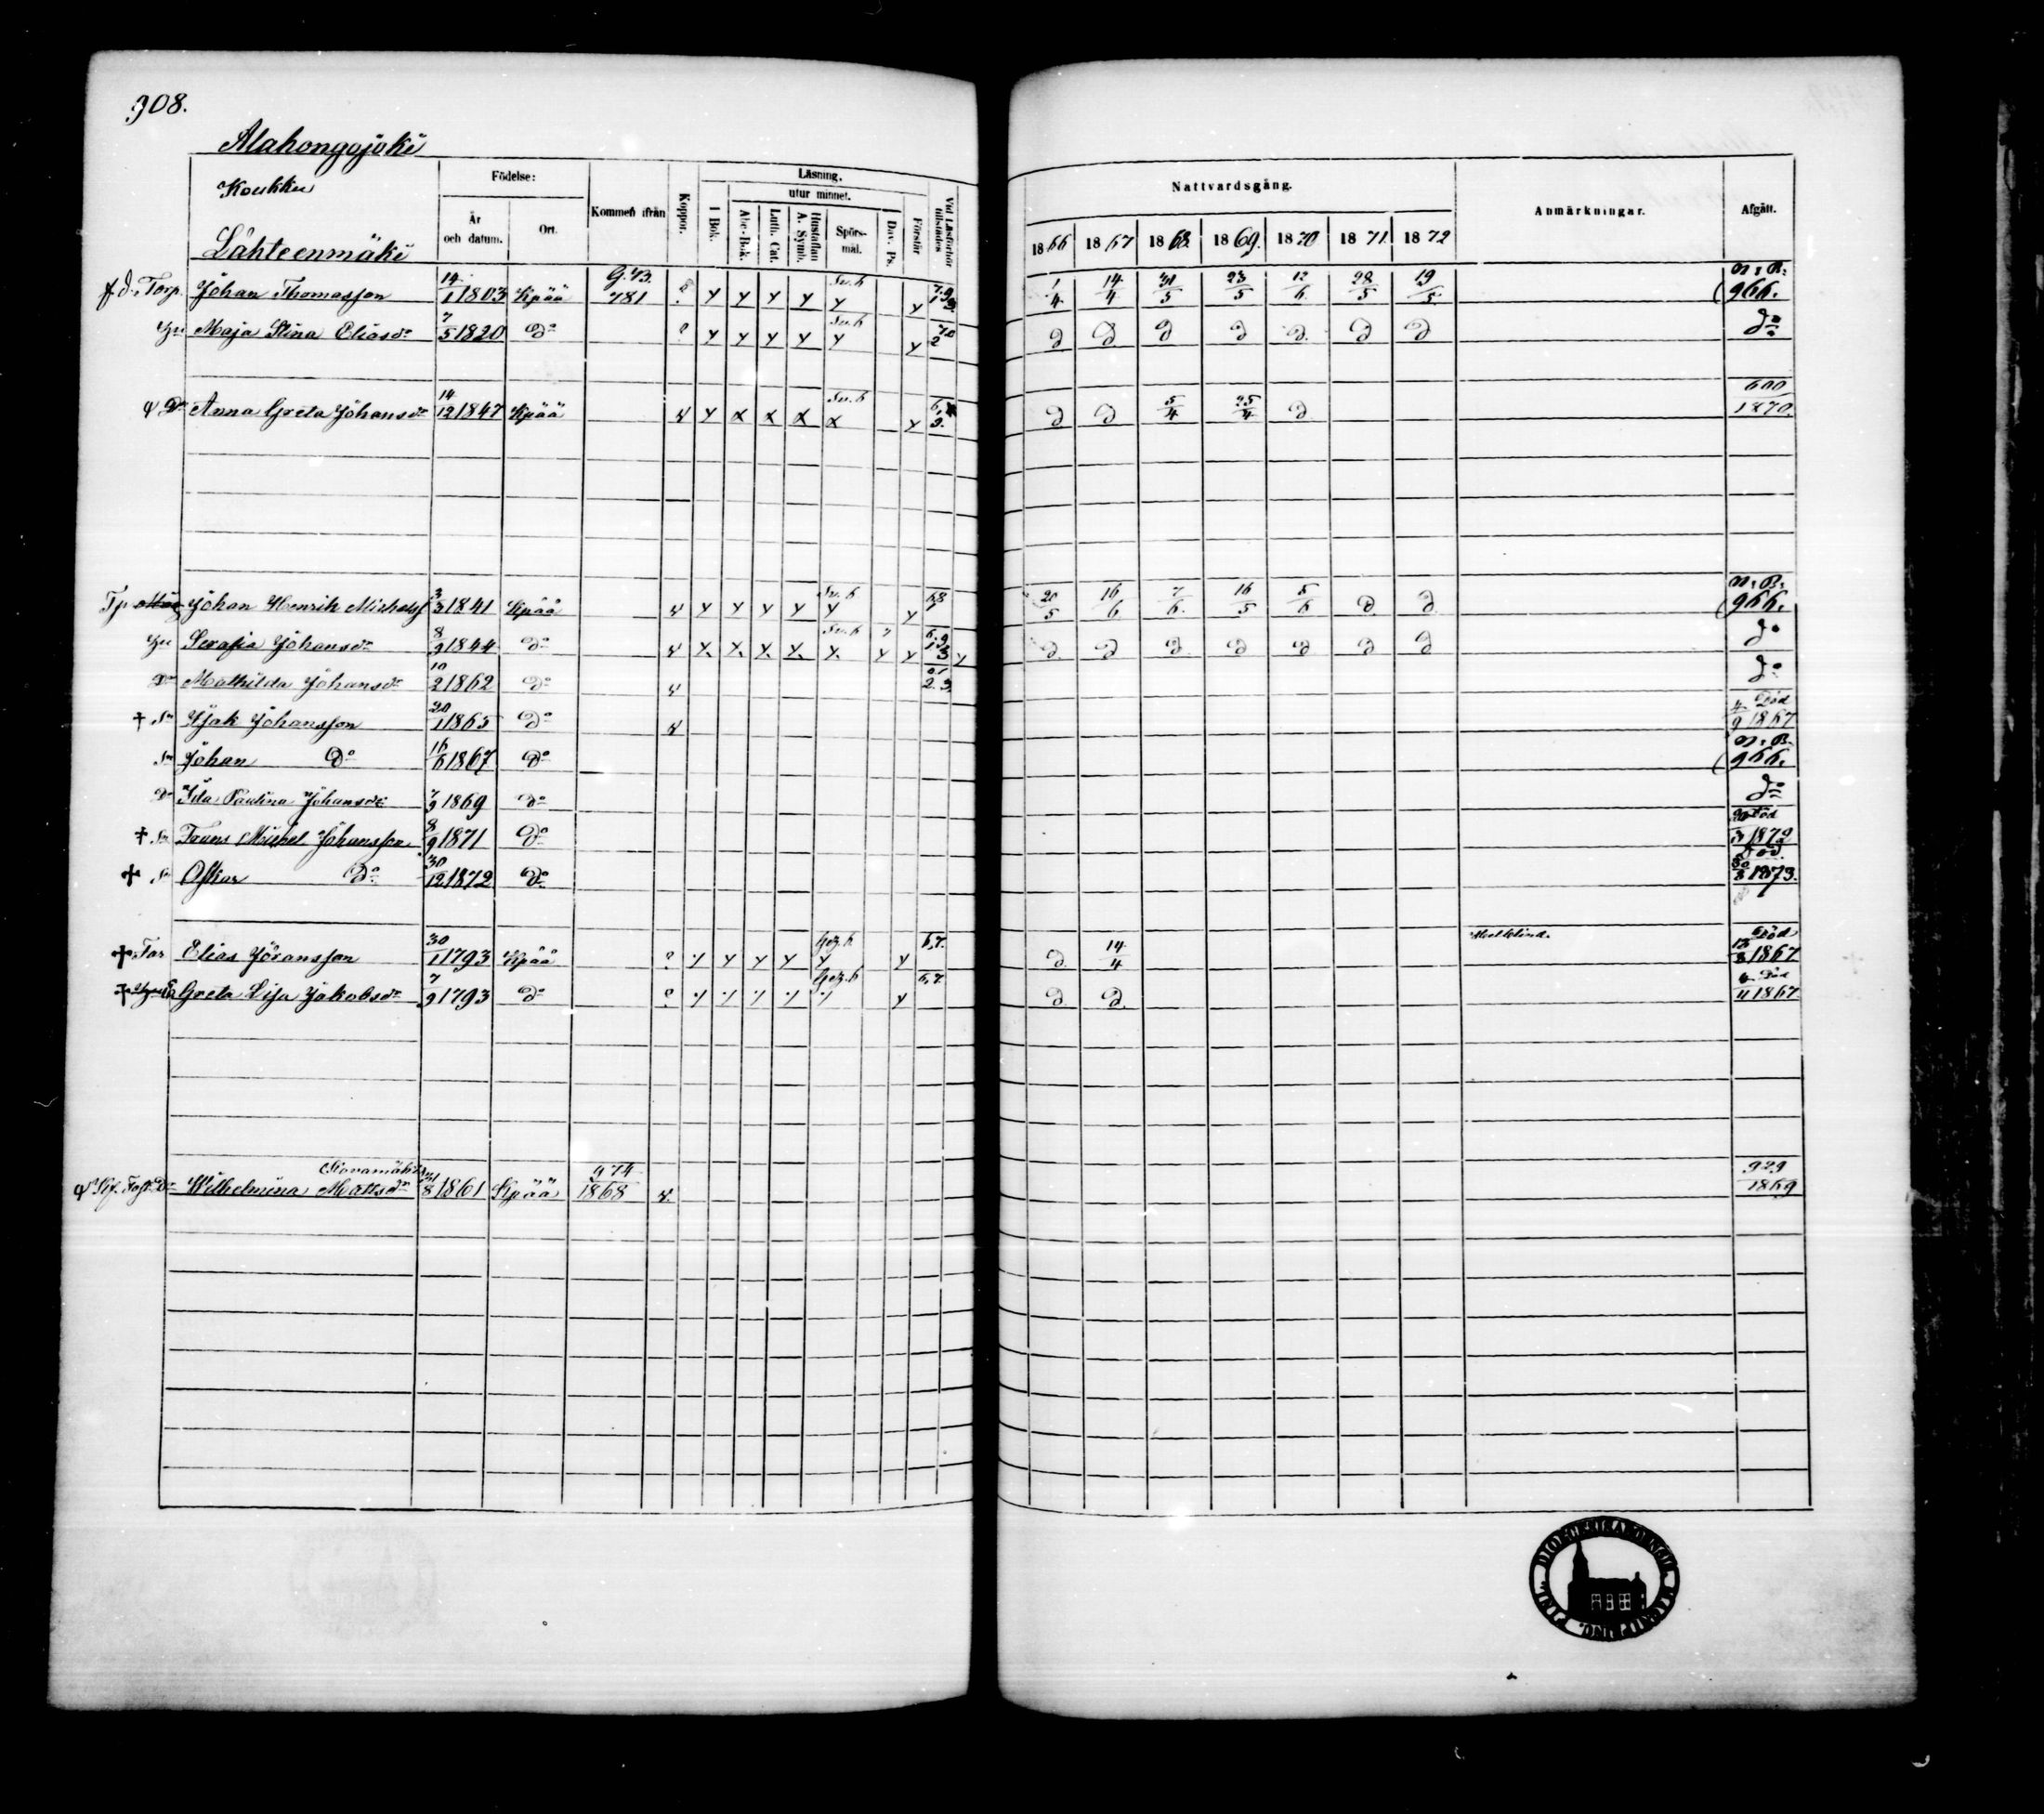 908.
Alahongojoki
Koukku
Lähteenmäki
Födelse:
År och datum.
Ort.
Kommen ifrån
Koppor.
Läsning.
I Bok.
utur minnet.
Abc-Bok.
Luth. Cat.
Hustaflan A. Symb.
Spörs-mål.
Dav. Ps.
Förstår
Vid Läsförhör tillstädes
Nattvardsgång.
1866 1867 1868 1869. 1870 1871 1872
Anmärkningar.
Afgått.
f. d. Torp. Johan Thomasson 14/1 1803 Kpää G. B. 781 ? y y y y Sv. b y y 1/4 14/4 31/5 23/5 12/6 28/5 19/5 N. B. 966.
Hu Maja Stina Eliasdr 7/5 1820 Do ? y y y y Sv. b y y D D D D D D D Do
Dr Anna Greta Johansdr 14/12 1847 Kpää y x x x Sv. b x y D D 5/4 25/4 D 600/1870.
Tp Johan Henrik Michelss 3/3 1841 Kpää y y y y Sv. b y y 20/5 16/6 7/6 16/5 5/6 D D N. B. 966.
Hu Serafia Johansdr 8/9 1844 Do x x x x Sv. b x y y y D D D D D D D Do
Dr Mathilda Johansdr 10/2 1862 Do Do
† Sn Isak Johansson 20/1 1865 Do Död 4/9 1867
Sn Johan Do 16/6 1867 Do N. B. 966.
Dr Ida Paulina Johansdr 7/9 1869 Do Do
† Sn Frans Michel Johansson 8/9 1871 Do Död 1872
† Sn Oskar Do 30/12 1872 Do Död 1873.
† Far Elias Göransson 30/1 1793 Kpää ? y y y Y 6,7. D 14/4 Död 1867
† Greta Lisa Jakobsdr 7/9 1793 Do ? y 6,7. D D Död 1867.
Wilhelmina Mattsdr 8 1861 Kpää 974/1868 929/1869